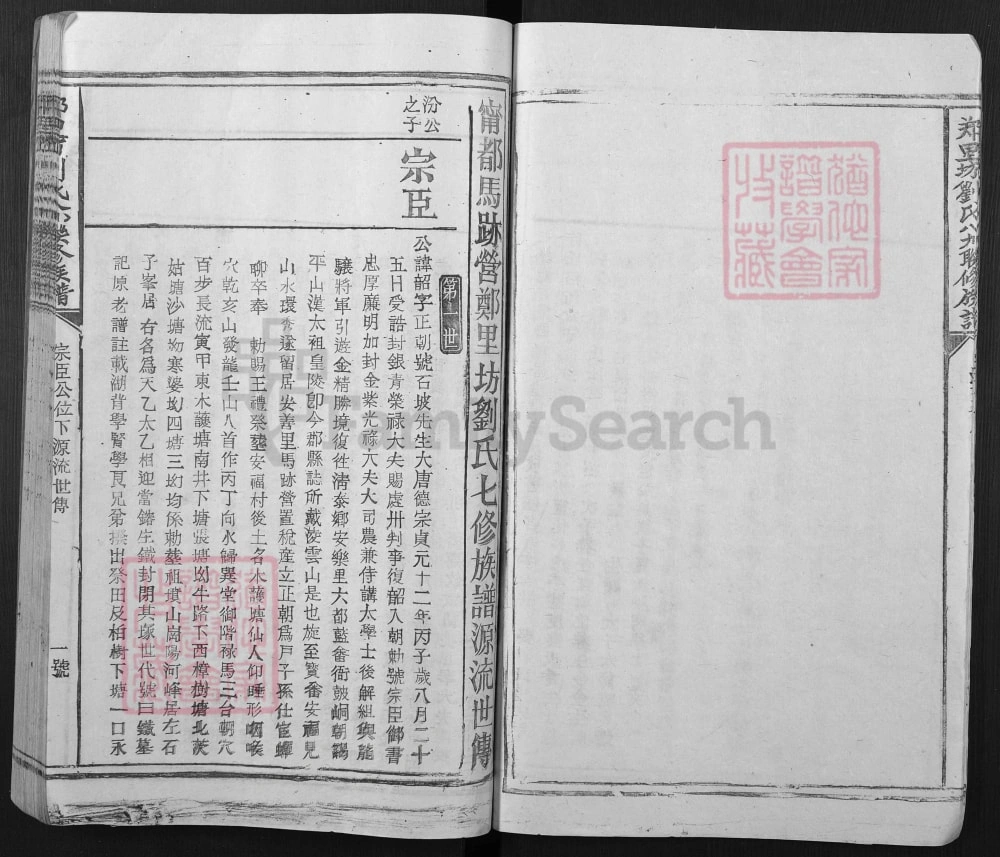 鄭里坊劉氏八九聯修族譜
甯都馬跡營鄭里坊劉氏七修族譜源流世傳
第一世
汾公之子
宗臣
公諱韶字正朝號石坡先生大唐德宗貞元十二年丙子歲八月二十
五日受誥封銀青榮禄大夫賜處州判事復韶入朝勅號宗臣御書
忠厚廉明加封金紫光祿大夫大司農兼侍講太學士後解組與龍
驤將軍引遊金精勝境復徃清泰鄉安樂里六都藍畬衙皷峒朝謁
平山漢太祖皇陵卽今郡縣誌所戴淩雲山是也旋至賢畬安福見
山水環秀遂留居安善里馬跡營置稅產立正朝爲戶子孫仕宦蟬
聊卒奉 勅賜王禮祭塟安福村後土名木護塘仙人仰睡形咽喉
穴乾亥山發龍壬山八首作丙丁向水歸巽堂御階祿馬三台朝穴
百步長流寅甲東木護塘南井下塘張塘㘭牛路下西樟樹塘北茨
姑塘沙塘㘭寒婆㘭四塘三㘭均係勅塟祖墳山崗陽河峰居左石
子峯居右名爲天乙太乙相迎當鎔生鐵封閉其塚世代號曰鐵墓
記原老譜註載湖背學賢學良兄弟撥出祭田及柏樹下塘一口永
宗臣公位下源流世傳
一號
FamilySearch